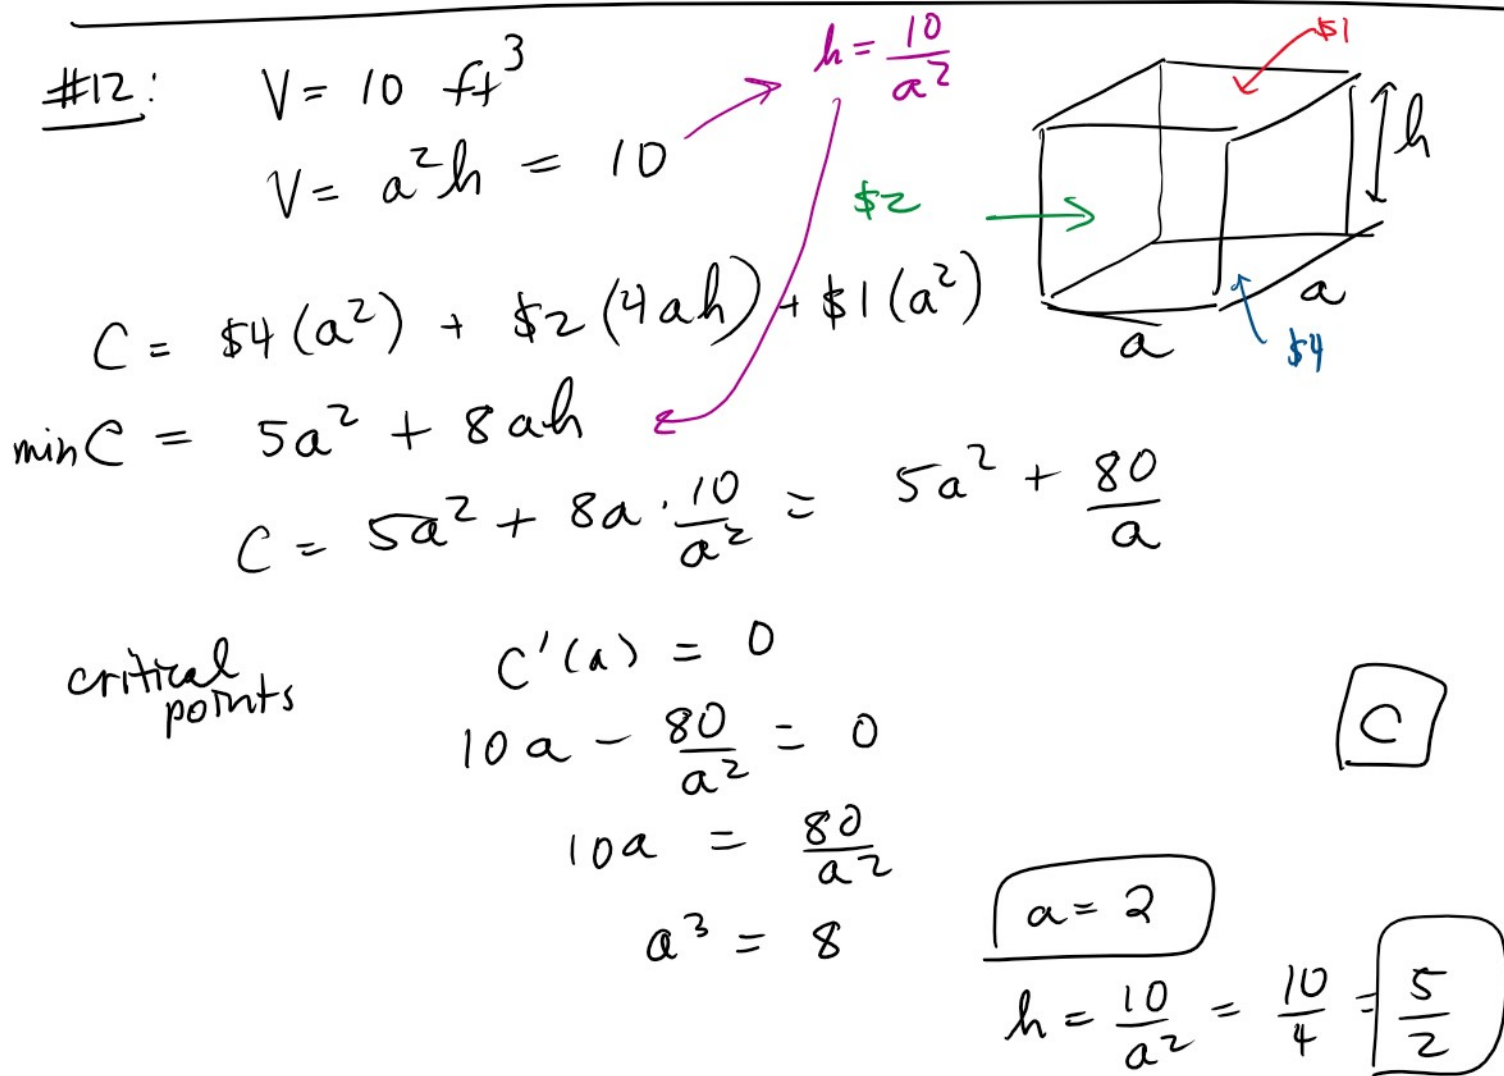 #12: V = 10 ft³
h = 10/a²
$1
V = a²h = 10
h
$2
C = $4(a²) + $2(4ah) + $1(a²)
a
a
$4
min C = 5a² + 8ah
C = 5a² + 8a · 10/a² = 5a² + 80/a
critical points
C'(a) = 0
10a - 80/a² = 0
C
10a = 80/a²
a³ = 8
a = 2
h = 10/a² = 10/4 = 5/2